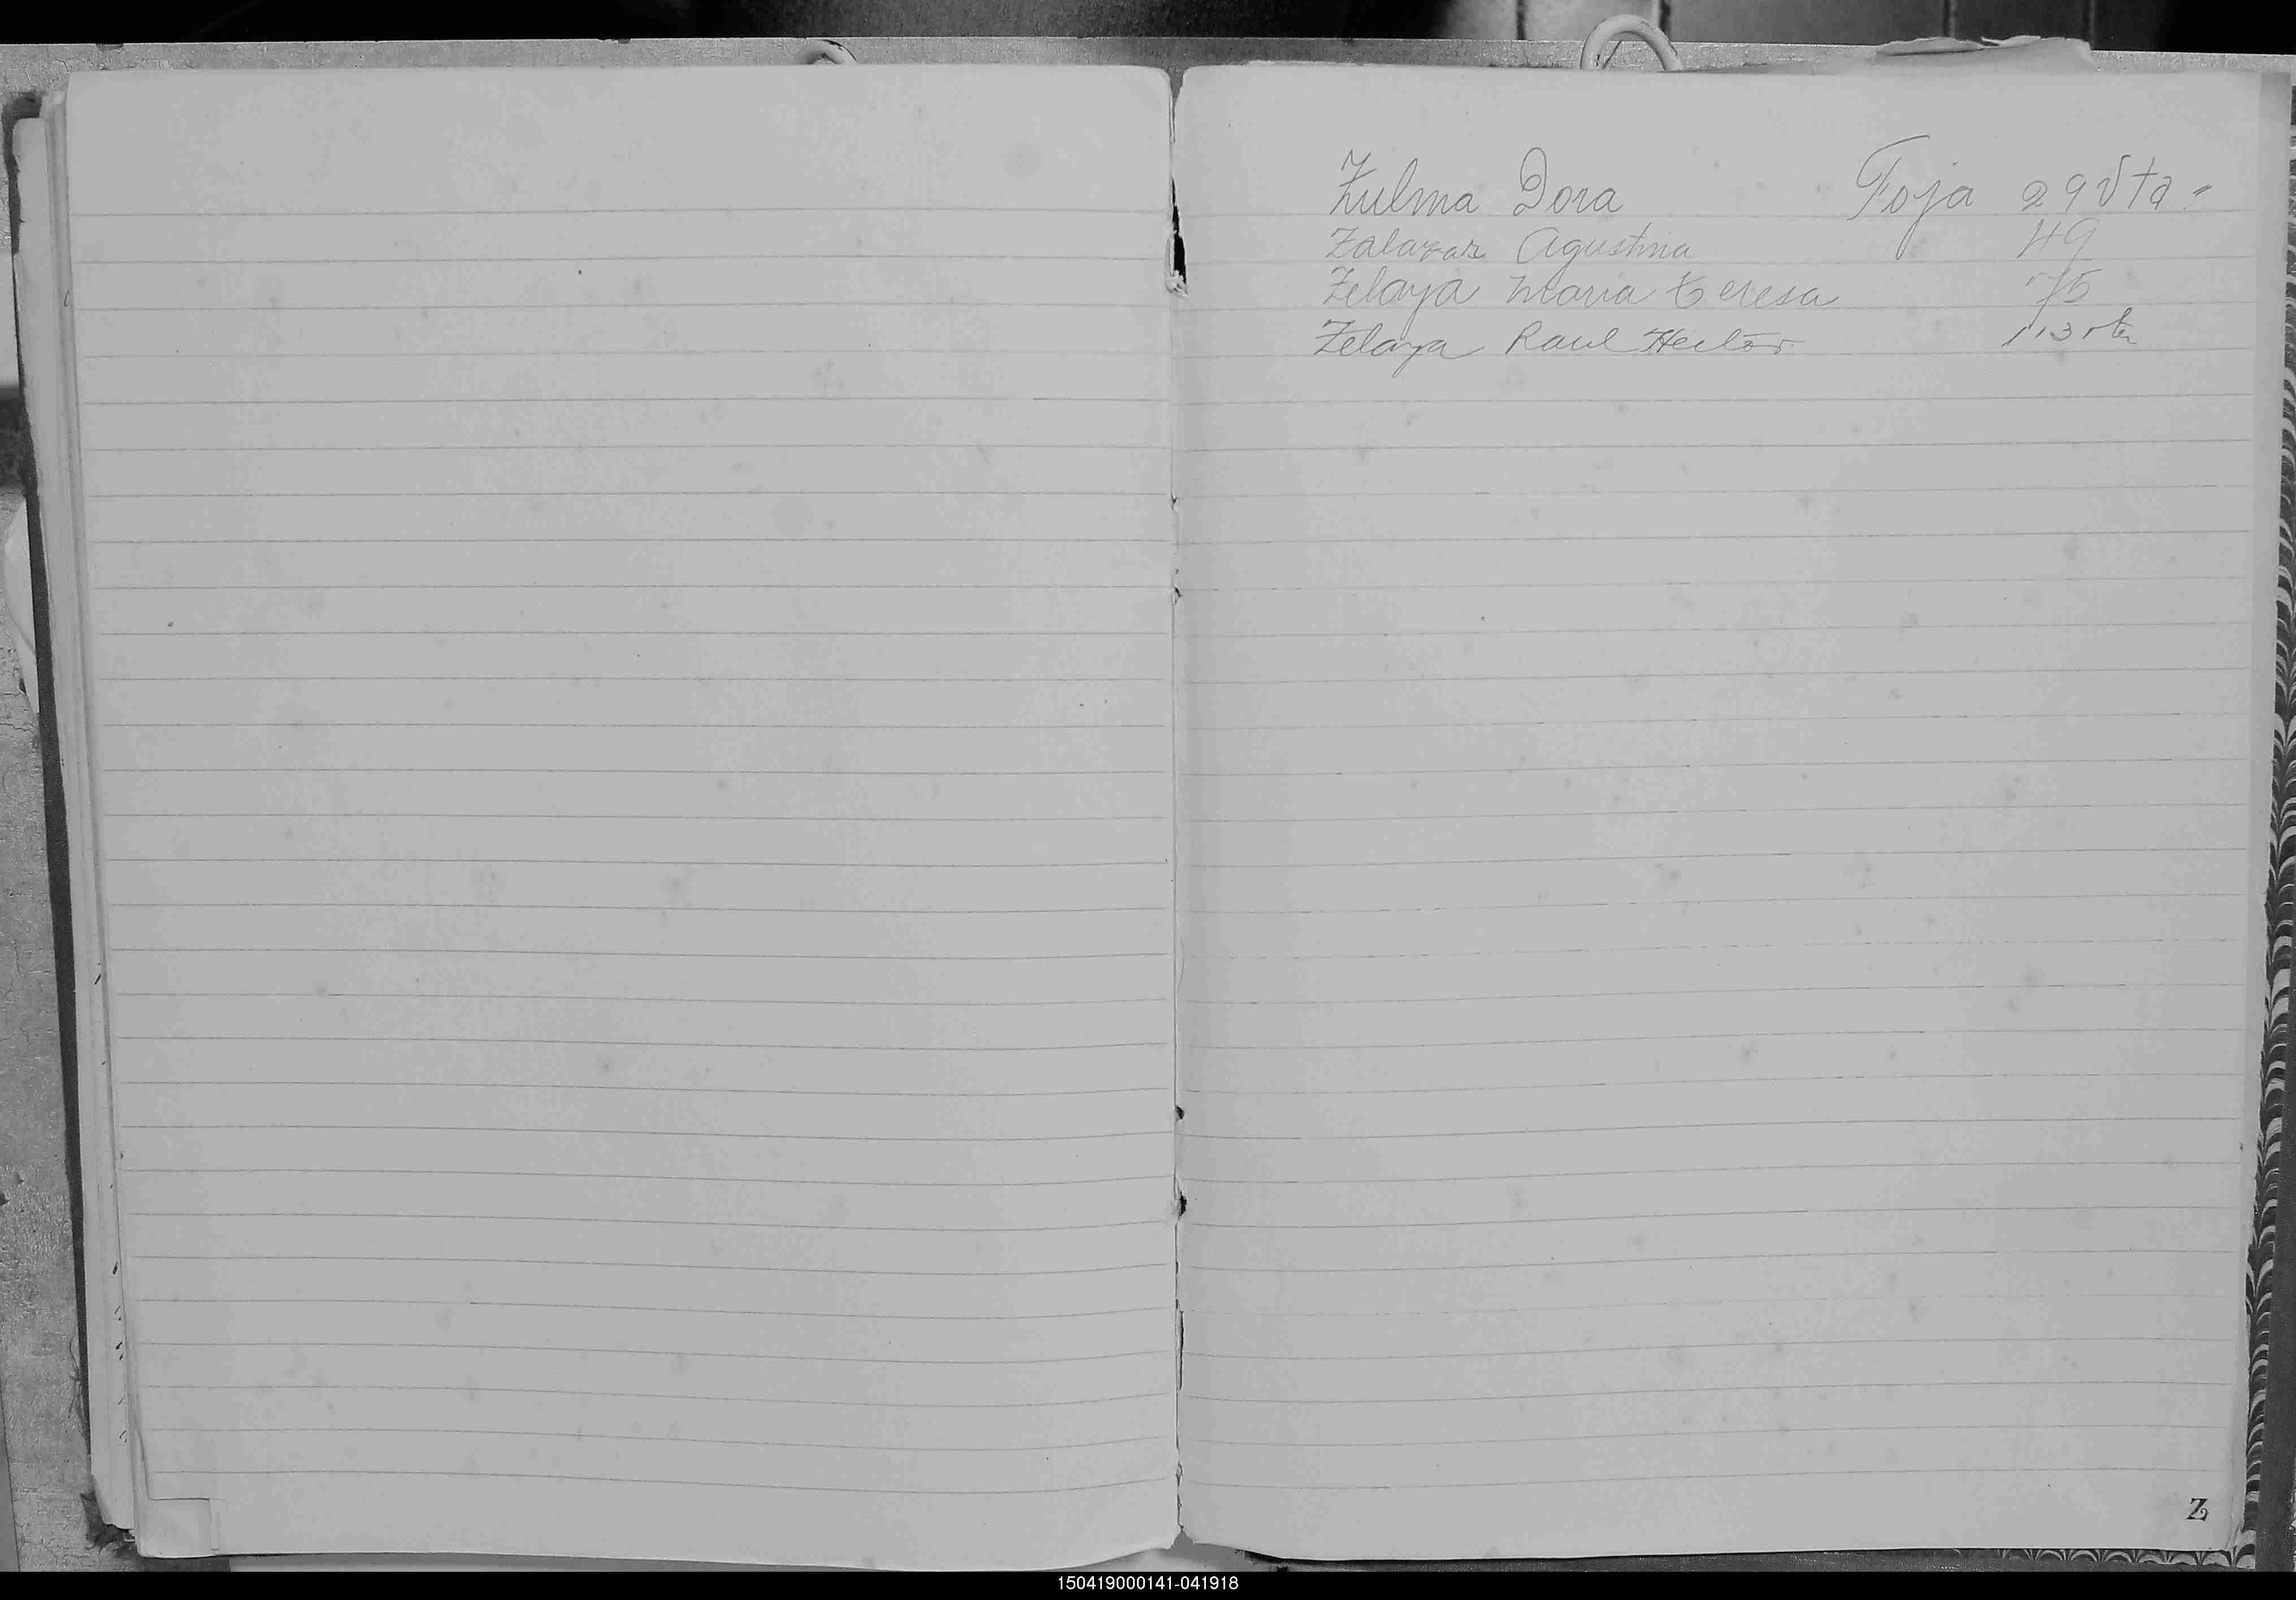 Zulma Dora Foja 29 Vta.
Zalazar Agustina 49
Zelaya Maria Teresa 75
Zelaya Raul Hector 113 vta
Z
150419000141-041918